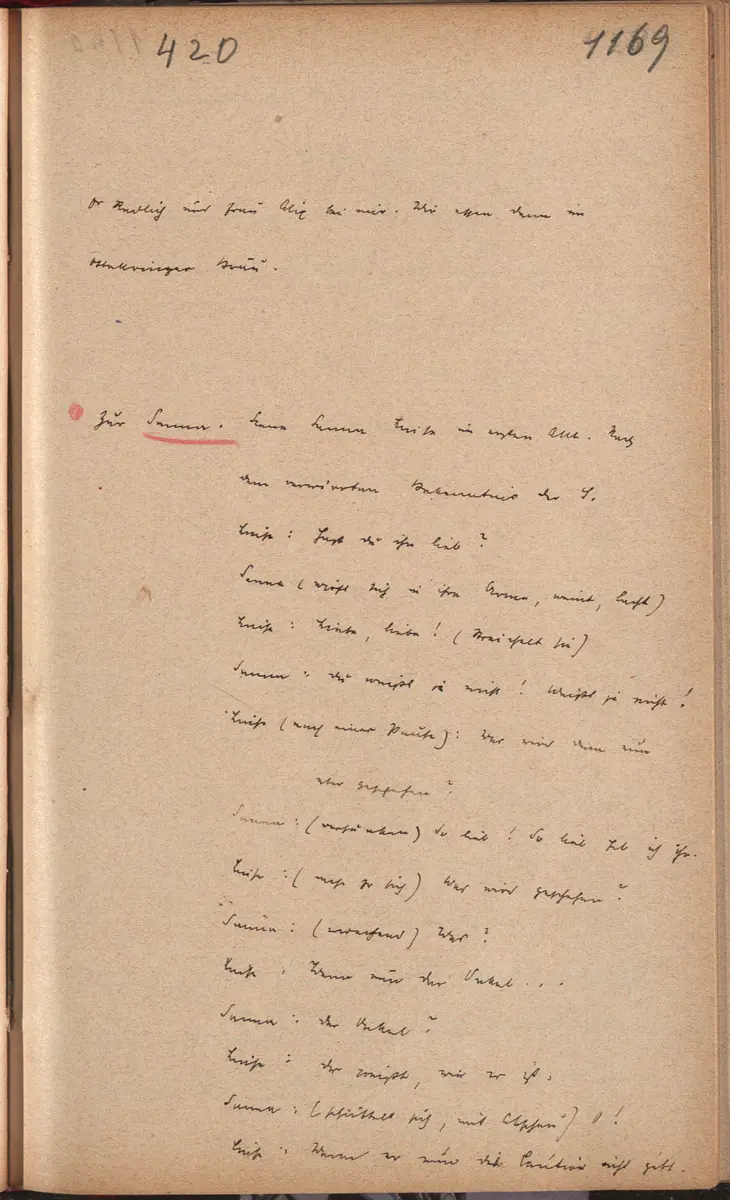 420
1169
Dr Redlich und Frau Alix bei mir. Wir essen dann im
Ottakringer Bräu.
Zur Sanna. Scene Sanna Luise im ersten Akt. Nach
dem verwirrten Bekenntnis der S.
Luise: Hast du ihn lieb?
Sanna (wirft sich in ihre Arme, weint, lacht)
Luise: Liebe, liebe! (streichelt sie)
Sanna: Du weißt ja nicht! Weißt ja nicht!
Luise (nach einer Pause): Was wird denn nun
aber geschehen?
Sanna: (versunken) So lieb! So lieb hab ich ihn.
Luise: (mehr zu sich) Was wird geschehen?
Sanna: (erwachend) Was?
Luise: Wenn nun der Onkel...
Sanna: Der Onkel?
Luise: Du weißt, wie er ist.
Sanna: (schüttelt sich, mit Abscheu) O!
Luise: Wenn er nun die Caution nicht gibt.